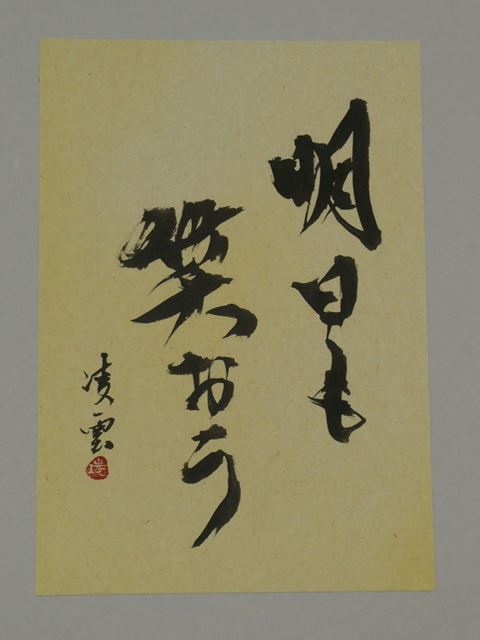 明日も
笑おう
凌雲